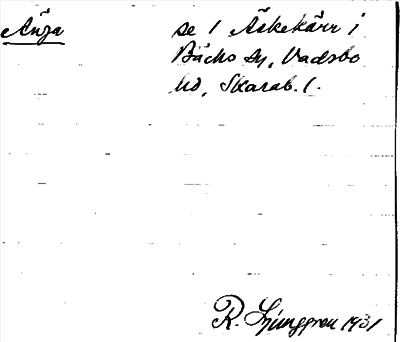 Änga se 1 Äskekärr i
Bäcks sn, Vadsbo
hd, Skarab. l.
R. Ljunggren 1931